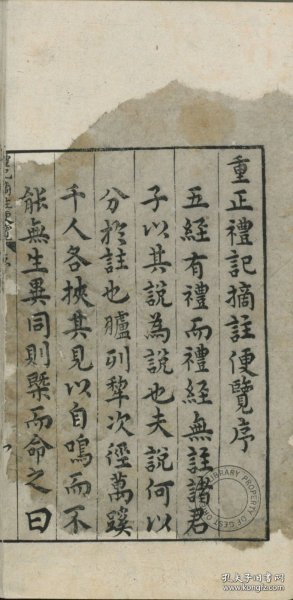 重正禮記摘註便覽序
五經有禮而禮經無註諸君
子以其說為說也夫說何以
分於註也臚列犂次徑萬蹊
千人各挾其見以自鳴而不
能無生異同則槩而命之曰
LIBRARY PROPERTY OF GEST
孔夫子旧书网
www.kongfz.com